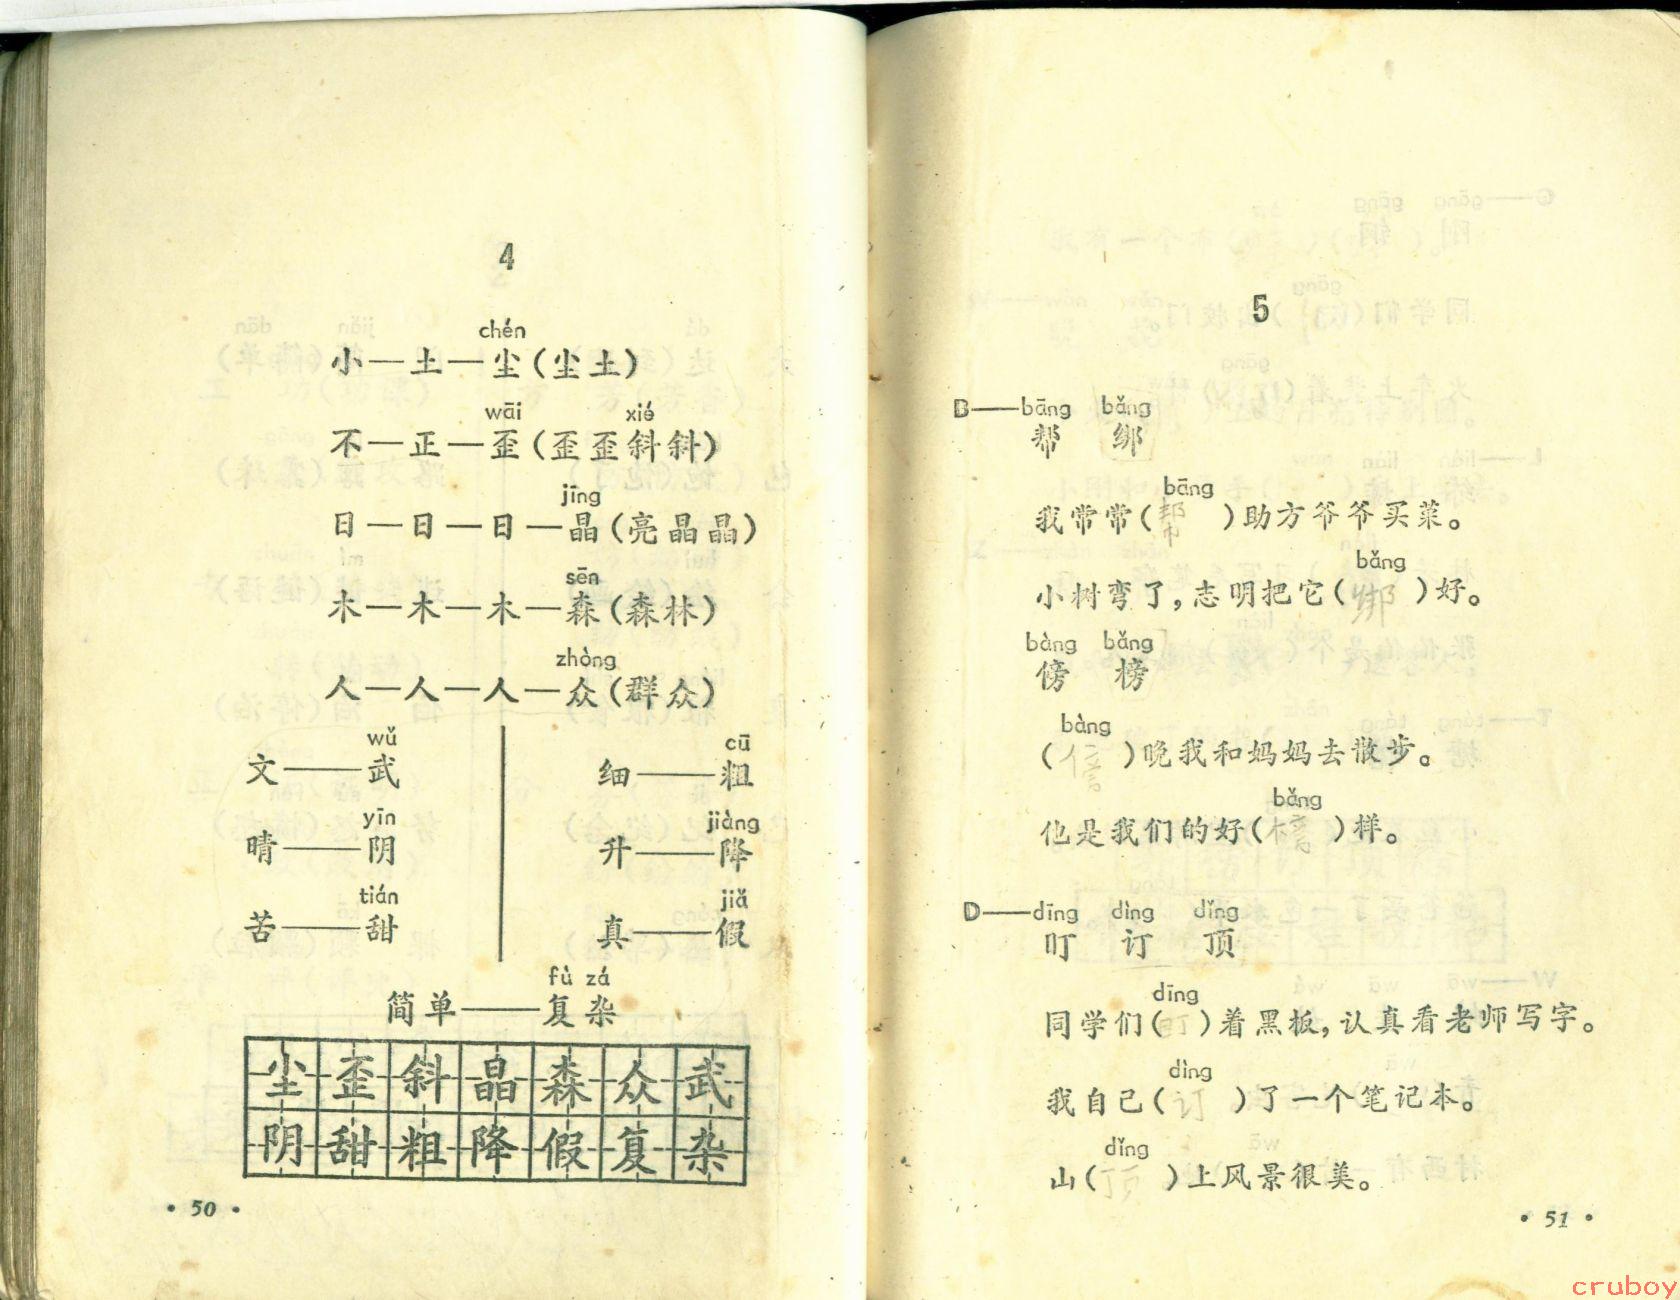 4
chén
小—土—尘(尘土)
wāi xié
不—正—歪(歪歪斜斜)
jīng
日—日—日—晶(亮晶晶)
sēn
木—木—木—森(森林)
zhòng
人—人—人—众(群众)
wǔ
文——武
yīn
晴——阴
tián
苦——甜
cū
细——粗
jiàng
升——降
jiǎ
真——假
fù zá
简单——复杂
尘歪斜晶森众武
阴甜粗降假复杂
• 50 •
5
B——bāng bǎng
帮 绑
bāng
我常常(帮)助方爷爷买菜。
bǎng
小树弯了,志明把它(绑)好。
bàng bǎng
傍 榜
bàng
(傍)晚我和妈妈去散步。
bǎng
他是我们的好(榜)样。
D——dīng dìng dǐng
盯 订 顶
dīng
同学们(盯)着黑板,认真看老师写字。
dìng
我自己(订)了一个笔记本。
dǐng
山(顶)上风景很美。
• 51 •
cruboy